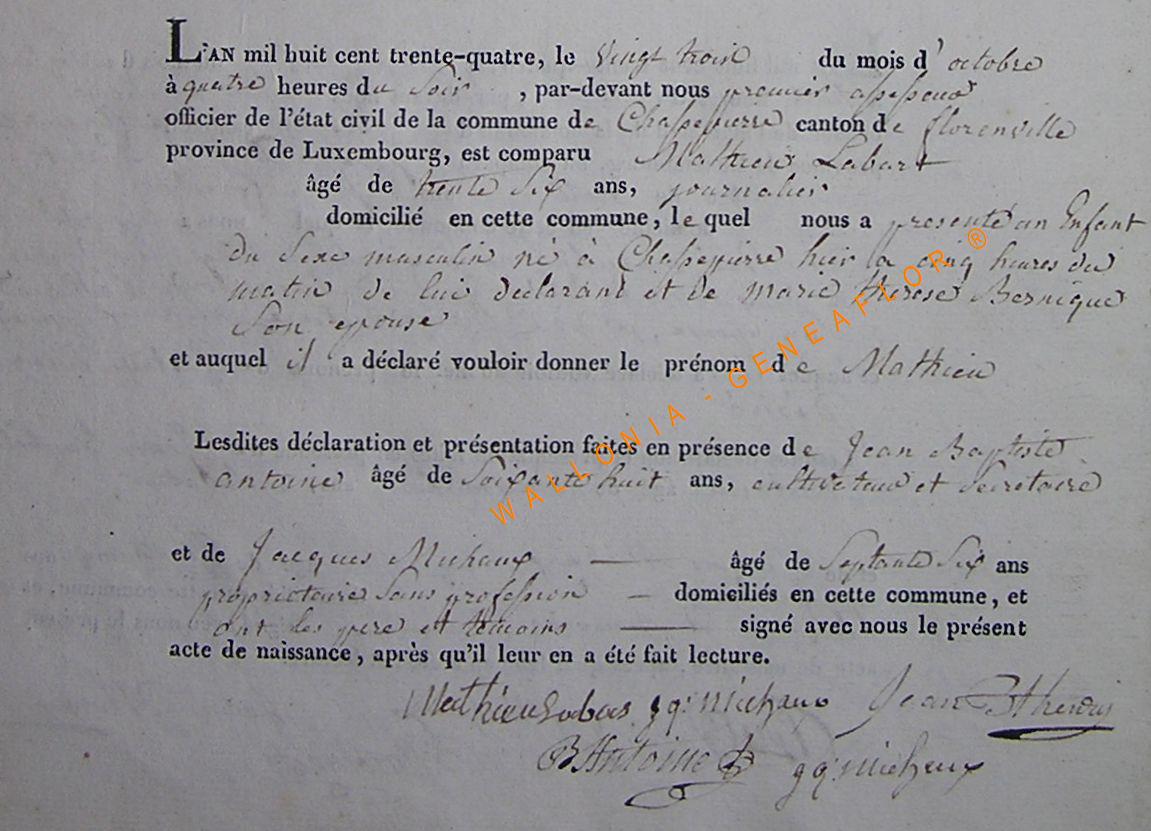 L'AN mil huit cent trente-quatre, le vingt trois du mois d'octobre
à quatre heures du soir, par-devant nous premier assesseur
officier de l'état civil de la commune de Chassepierre canton de florenville
province de Luxembourg, est comparu Mathieu Labart
âgé de trente Six ans, journalier
domicilié en cette commune, le quel nous a presenté un Enfant
du Sexe masculin né à Chassepierre hier la cinq heures du
matin de lui declarant et de marie therese Bernique
Son epouse
et auquel il a déclaré vouloir donner le prénom de Mathieu
Lesdites déclaration et présentation faites en présence de Jean Baptiste
antoine âgé de Soixante huit ans, cultivateur et Secretaire
et de Jacques Michaux âgé de Septante Six ans
proprietaire Sans profession domiciliés en cette commune, et
ont les pere et temoins signé avec nous le présent
acte de naissance, après qu'il leur en a été fait lecture.
Mathieu Labas jq: michaux Jean
B Antoine jq: michaux
WALLONIA - GENEAFLOR ®